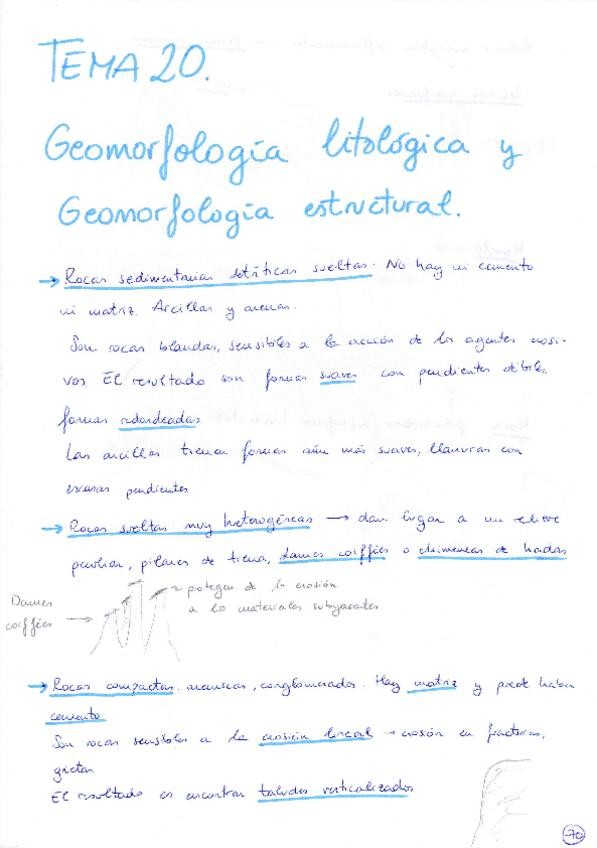 TEMA 20.
Geomorfología litológica y
Geomorfología estructural.
→ Rocas sedimentarias detríticas sueltas. No hay ni cemento
ni matriz. Arcillas y arenas.
Son rocas blandas, sensibles a la acción de los agentes erosi-
vos El resultado son formas suaves con pendientes débiles,
formas redondeadas
Las arcillas tienen formas aún más suaves, llanuras con
escasas pendientes
→ Rocas sueltas muy heterogéneas → dan lugar a un relieve
peculiar, pilares de tierra, dames coiffées o chimeneas de hadas
Dames
coiffées
protegen de la erosión
a los materiales subyacentes
→ Rocas compactas. areniscas, conglomerados. Hay matriz y puede haber
cemento
Son rocas sensibles a la erosión lineal → erosión en fracturas,
grietas
El resultado es encontrar taludes verticalizados
70